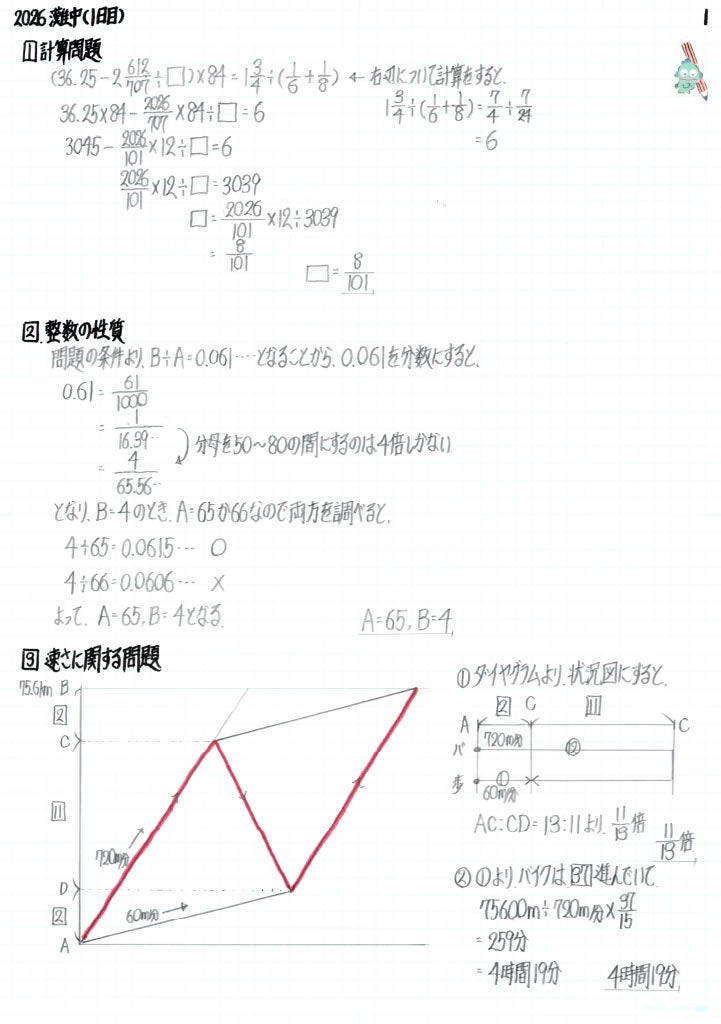 2026 灘中(1日目)
1
1 計算問題
(36.25-2 612/707÷□)×84=1 3/4÷(1/6+1/8) ← 右辺について計算をすると、
36.25×84-2026/707×84÷□=6
1 3/4÷(1/6+1/8)=7/4÷7/24
=6
3045-2026/101×12÷□=6
2026/101×12÷□=3039
□=2026/101×12÷3039
=8/101
□=8/101
2 整数の性質
問題の条件より、B÷A=0.061…となることから、0.061を分数にすると、
0.61=61/1000
=1/16.39…
分母を50~80の間にするのは4倍しかない
=4/65.56…
となり、B=4のとき、A=65か66なので両方を調べると、
4÷65=0.0615… ○
4÷66=0.0606… ×
よって、A=65,B=4となる.
A=65, B=4
3 速さに関する問題
75.6km B
2
C
11
720m/分
D
2
60m/分
A
①ダイヤグラムより、状況図にすると、
2 C 11
A C
バ 720m/分 ⑫
歩 ①
60m/分
AC:CD=13:11より、11/13倍
11/13倍
②①よりバイクは37進んでいて
75600m÷720m/分×37/15
=259分
=4時間19分
4時間19分